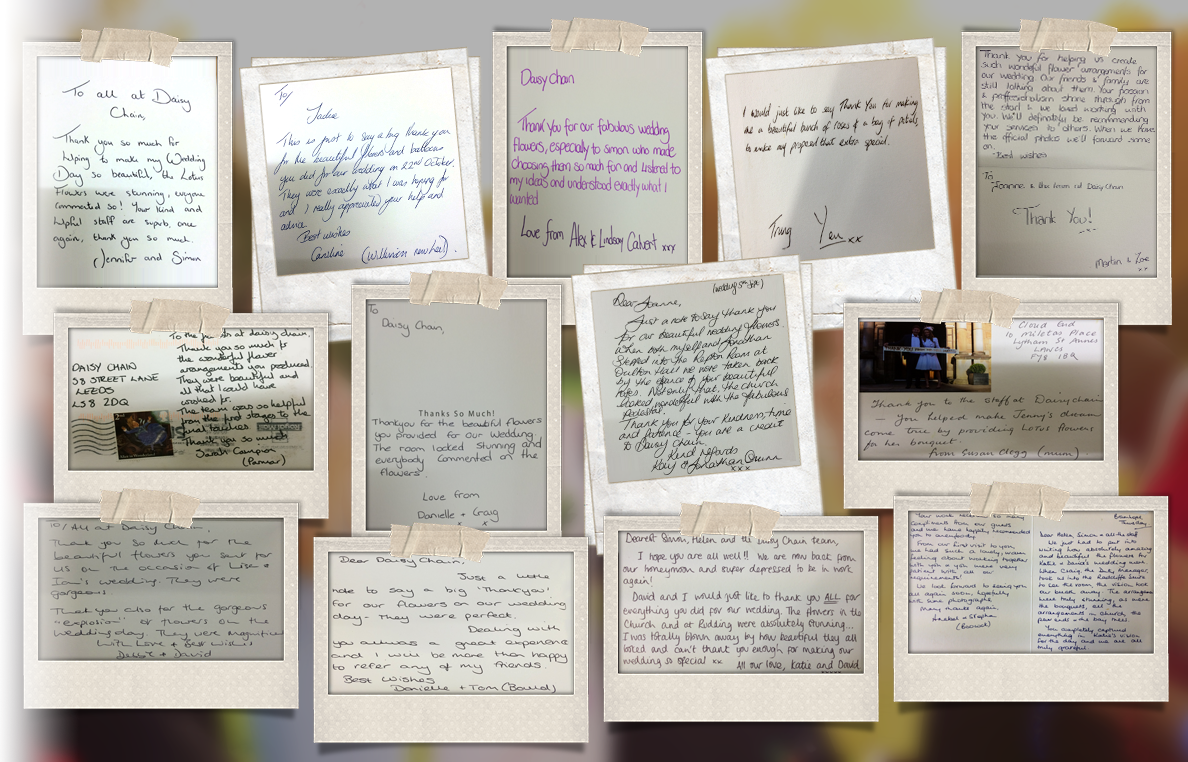 To all at Daisy
Chain,
Thank you so much for
helping to make my Wedding
Day so beautiful, the Lotus
Flowers were stunning, everyone
commented so! Your kind and
helpful staff are superb, once
again, thank you so much.
Jennifer and Simon
To/
Jackie
This is just to say a big thank you
for the beautiful flowers and balloons
you did for our wedding on 22nd October.
They were exactly what I was hoping for
and I really appreciated your help and
advice.
Best wishes
Caroline
Daisy chain
Thank you for our fabulous wedding
flowers, especially to simon who made
choosing them so much fun and listened to
my ideas and understood exactly what I
wanted
Love from Alex & Lindsay Calvert xxx
I would just like to say Thank You for making
me a beautiful bunch of roses & a bag of petals
to make my proposal that extra special.
Trung Yen xx
Thank you for helping us create
such wonderful flower arrangements for
our wedding. Our friends & family are
still talking about them. Your passion
& proffesionalism shone through from
the start & we loved working with
you. We'll definately be recommending
your services to others. When we have
the official photos we'll forward some
on.
Best wishes
To
Joanne & the team at Daisy Chain
Thank You!
Martin & Zoe
xx
DAISY CHAIN
58 STREET LANE
LEEDS
LS8 2DQ
To the at daisy chain
Thank you so much for
the wonderful flower
arrangements you produced.
They were beautiful and
all that I could have
wished for.
The team was so helpful
from the first stages to the
final touches.
Thank you so much
Sarah Campion
To
Daisy Chain,
Thanks So Much!
Thankyou for the beautiful flowers
you provided for our Wedding
The room looked stunning and
everybody commented on the
flowers.
Love from
Danielle + Craig
x x
(wedding 5th Sept)
Dear Joanne,
Just a note to say thank you
for our beautiful wedding flowers
when both myself and Jonathan
stepped into the Repton Room at
Oulton Hall we were taken back
by the of your beautiful
roses. Not only that, the church
looked wonderful with the fabulous
pedestal.
Thank you for your kindness, time
and patience - You are a credit
to Daisy Chain.
Kind regards
& Jonathan
xxx
Cloud End
10 Miletas Place
Lytham St Annes
LANCS
FY8 1BQ
THANK YOU
Thank you to the staff at Daisychain
- you helped make Jenny's dream
come true by providing Lotus flowers
for her bouquet.
from Susan Clegg (mum).
To/ All at Daisy Chain.
Thank you so much for
beautiful flowers you did
us on the occasion of Lisa &
Ian's wedding. They were
gorgeous.
Thank you also for the gorgeous
"explosion" of flowers on the
wedding day. They were magnificent
with Love + Best wishes
Debbi + David
Dear Daisy Chain,
Just a wee
note to say a big 'Thankyou'
for our flowers on our wedding
day. They were perfect.
Dealing with
you was a great experience
and I will be more than happy
to refer any of my friends.
Best Wishes
Danielle + Tom (Bould)
Dearest Simon, Helen and the Daisy Chain team,
I hope you are all well!! We are now back from
our honeymoon and super depressed to be in work
again!
David and I would just like to thank you ALL for
everything you did for our wedding. The flowers in the
Church and at Rudding were absolutely stunning...
I was totally blown away by how beautiful they all
looked and can't thank you enough for making our
wedding so special xx All our love, Katie and David
xxxxx
Your work received so many
compliments from our guests
and we have happily recommended
you to everybody.
From our first visit to you
we had such a lovely, warm
feeling about working together
with you & you were very
patient with all our
requirements!
We look forward to seeing you
all again soon, hopefully
with some photographs
Many thanks again,
& Stephen
Bramhope
Tuesday
Dear Helen, Simon & all the staff
We just had to put into
writing how absolutely amazing
and beautiful the flowers for
Katie & David's wedding were
When Craig, the Duty Manager,
took us into the Radcliffe Suite
to see the room, the vision took
our breath away. The arrangements
were truly stunning as were
the bouquets, all the
arrangements in church, the
pew ends & the bay trees.
You completely captured
everything in Katie's vision
for the day and we are all
truly grateful.